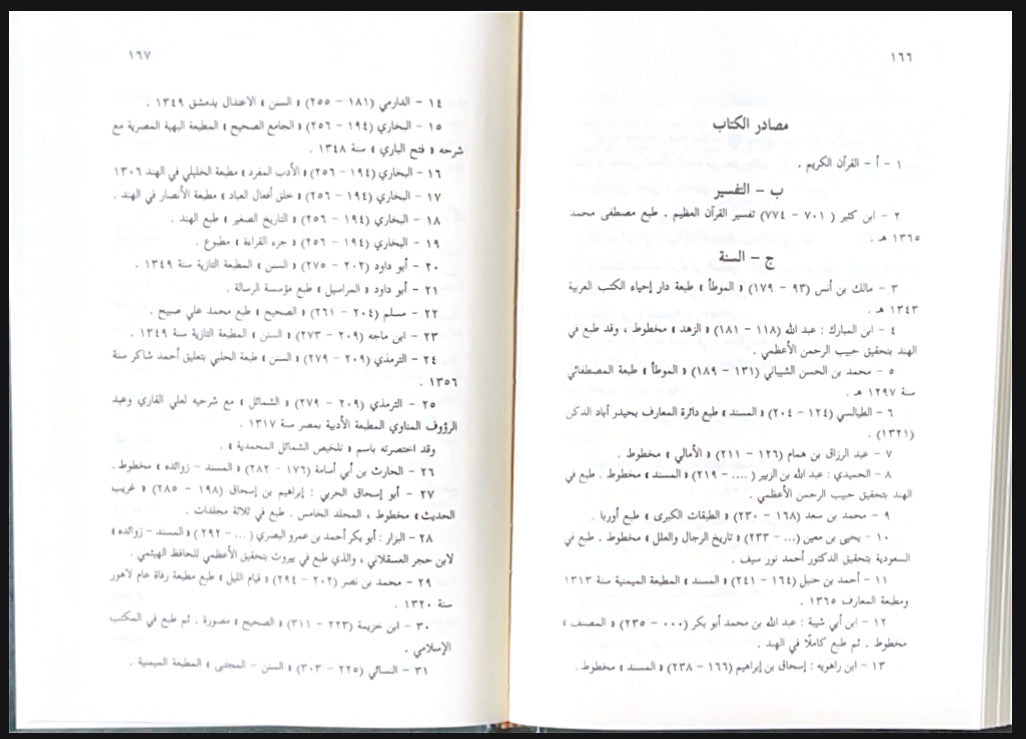 ١٦٦
مصادر الكتاب
١ - أ - القرآن الكريم .
ب - التفسير
٢ - ابن كثير ( ٧٠١ - ٧٧٤) تفسير القرآن العظيم . طبع مصطفى محمد
١٣٦٥ هـ .
ج - السنة
٣ - مالك بن أنس (٩٣ - ١٧٩) « الموطأ » طبعة دار إحياء الكتب العربية
١٣٤٣ هـ .
٤ - ابن المبارك : عبد الله (١١٨ - ١٨١) « الزهد » مخطوط ، وقد طبع في
الهند بتحقيق حبيب الرحمن الأعظمي .
٥ - محمد بن الحسن الشيباني (١٣١ - ١٨٩) « الموطأ » طبعة المصطفائي
سنة ١٢٩٧ هـ .
٦ - الطيالسي (١٢٤ - ٢٠٤) « المسند » طبع دائرة المعارف بحيدر آباد الدكن
(١٣٢١) .
٧ - عبد الرزاق بن همام (١٢٦ - ٢١١) « الأمالي » مخطوط .
٨ - الحميدي : عبد الله بن الزبير (.... - ٢١٩) « المسند » مخطوط . طبع في
الهند بتحقيق حبيب الرحمن الأعظمي .
٩ - محمد بن سعد (١٦٨ - ٢٣٠) « الطبقات الكبرى » طبع أوربا .
١٠ - يحيى بن معين (... - ٢٣٣) « تاريخ الرجال والعلل » مخطوط . طبع في
السعودية بتحقيق الدكتور أحمد نور سيف .
١١ - أحمد بن حنبل (١٦٤ - ٢٤١) « المسند » المطبعة الميمنية سنة ١٣١٣
ومطبعة المعارف ١٣٦٥ .
١٢ - ابن أبي شيبة : عبد الله بن محمد أبو بكر (٠٠٠ - ٢٣٥) « المصنف »
مخطوط . ثم طبع كاملًا في الهند .
١٣ - ابن راهويه : إسحاق بن إبراهيم (١٦٦ - ٢٣٨) « المسند » مخطوط .
١٦٧
١٤ - الدارمي (١٨١ - ٢٥٥) « السنن » الاعتدال بدمشق ١٣٤٩ .
١٥ - البخاري (١٩٤ - ٢٥٦) « الجامع الصحيح » المطبعة البهية المصرية مع
شرحه « فتح الباري » سنة ١٣٤٨ .
١٦ - البخاري (١٩٤ - ٢٥٦) « الأدب المفرد » مطبعة الخليلي في الهند ١٣٠٦
١٧ - البخاري (١٩٤ - ٢٥٦) « خلق أفعال العباد » مطبعة الأنصار في الهند .
١٨ - البخاري (١٩٤ - ٢٥٦) « التاريخ الصغير » طبع الهند .
١٩ - البخاري (١٩٤ - ٢٥٦) « جزء القراءة » مطبوع .
٢٠ - أبو داود (٢٠٢ - ٢٧٥) « السنن » المطبعة التازية سنة ١٣٤٩ .
٢١ - أبو داود « المراسيل » طبع مؤسسة الرسالة .
٢٢ - مسلم (٢٠٤ - ٢٦١) « الصحيح » طبع محمد علي صبيح .
٢٣ - ابن ماجه (٢٠٩ - ٢٧٣) « السنن » المطبعة التازية سنة ١٣٤٩ .
٢٤ - الترمذي (٢٠٩ - ٢٧٩) « السنن » طبعة الحلبي بتعليق أحمد شاكر سنة
١٣٥٦ .
٢٥ - الترمذي (٢٠٩ - ٢٧٩) « الشمائل » مع شرحيه لعلي القاري وعبد
الرؤوف المناوي المطبعة الأدبية بمصر سنة ١٣١٧ .
وقد اختصرته باسم « تلخيص الشمائل المحمدية » .
٢٦ - الحارث بن أبي أسامة (١٧٦ - ٢٨٢) « المسند - زوائده » مخطوط .
٢٧ - أبو إسحاق الحربي : إبراهيم بن إسحاق (١٩٨ - ٢٨٥) « غريب
الحديث » مخطوط ، المجلد الخامس . طبع في ثلاثة مجلدات .
٢٨ - البزار : أبو بكر أحمد بن عمرو البصري (... - ٢٩٢) « المسند - زوائده »
لابن حجر العسقلاني ، والذي طبع في بيروت بتحقيق الأعظمي للحافظ الهيثمي .
٢٩ - محمد بن نصر (٢٠٢ - ٢٩٤) « قيام الليل » طبع مطبعة رفاة عام لاهور
سنة ١٣٢٠ .
٣٠ - ابن خزيمة (٢٢٣ - ٣١١) « الصحيح » مصورة . ثم طبع في المكتب
الإسلامي .
٣١ - النسائي (٢٢٥ - ٣٠٣) « السنن - المجتبى » المطبعة الميمنية .